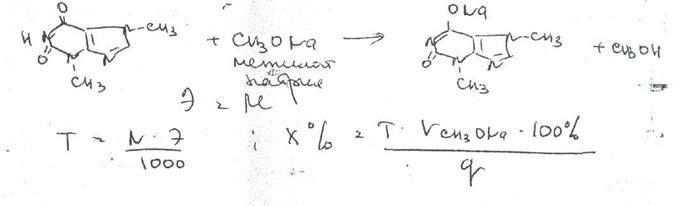 O
HN
N-CH3
O
N
N
CH3
+ CH3ONa
метилат
натрия
ONa
N
N-CH3
O
N
N
CH3
+ CH3OH
Э = М
T = N · Э / 1000 ; X% = T · V CH3ONa · 100% / q